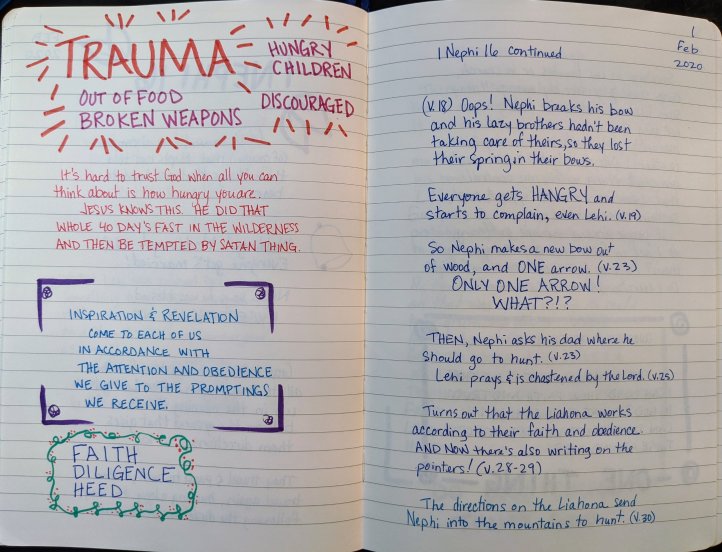 TRAUMA
HUNGRY
CHILDREN
OUT OF FOOD
BROKEN WEAPONS
DISCOURAGED
It's hard to trust God when all you can
think about is how hungry you are.
JESUS KNOWS THIS. HE DID THAT
WHOLE 40 DAY'S FAST IN THE WILDERNESS
AND THEN BE TEMPTED BY SATAN THING.
INSPIRATION & REVELATION
COME TO EACH OF US
IN ACCORDANCE WITH
THE ATTENTION AND OBEDIENCE
WE GIVE TO THE PROMPTINGS
WE RECEIVE.
FAITH
DILIGENCE
HEED
1 Nephi 16 continued
1
Feb
2020
(V.18) Oops! Nephi breaks his bow
and his lazy brothers hadn't been
taking care of theirs, so they lost
their spring in their bows.
Everyone gets HANGRY and
starts to complain, even Lehi. (v.19)
So Nephi makes a new bow out
of wood, and ONE arrow. (v.23)
ONLY ONE ARROW!
WHAT?!?
THEN, Nephi asks his dad where he
should go to hunt. (v.23)
Lehi prays & is chastened by the Lord. (v.25)
Turns out that the Liahona works
according to their faith and obedience.
AND NOW there's also writing on the
pointers! (v.28-29)
The directions on the Liahona send
Nephi into the mountains to hunt. (v.30)